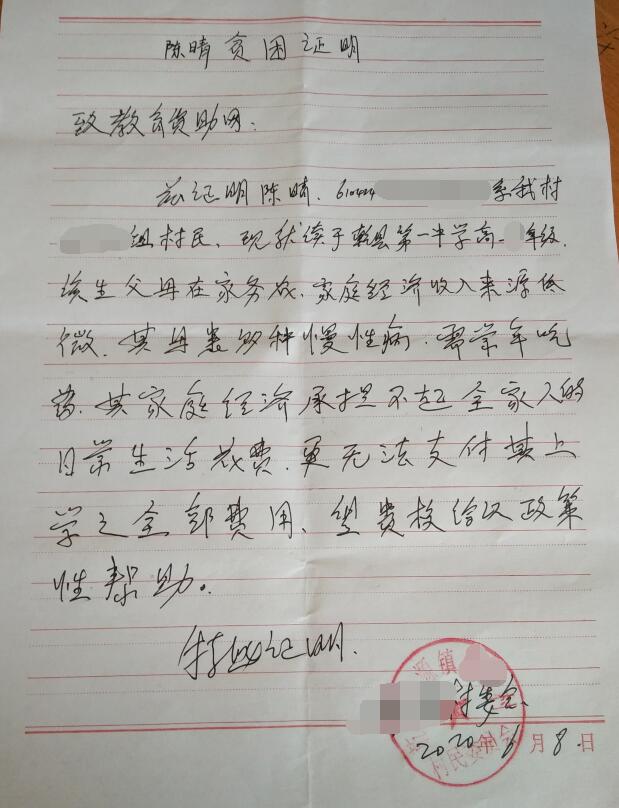 陈晴贫困证明
致教育资助网：
兹证明陈晴，610424 系我村
组村民，现就读于乾县第一中学高 年级，
该生父母在家务农，家庭经济收入来源低
微，其母患多种慢性病，需常年吃
药，其家庭经济承担不起全家人的
日常生活花费，更无法支付其上
学之全部费用，望贵校给以政策
性帮助。
特此证明。
源镇
村委会
2020年6月8日
村民委员会